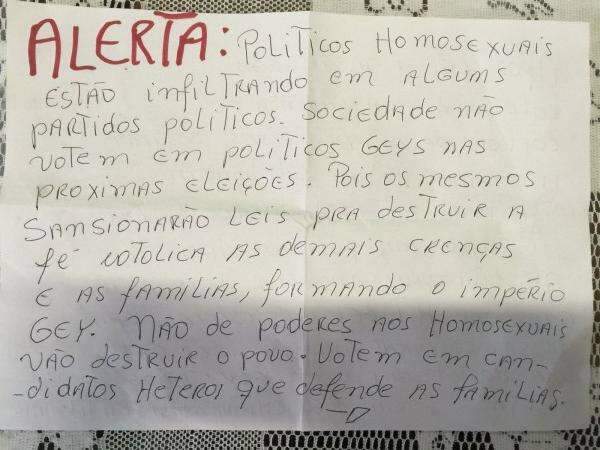 ALERTA: POLITICOS HOMOSEXUAIS
ESTÃO infilTRANDO em ALGUMS
PARTIDOS POLITICOS. SOCIEDADE NÃO
VOTEM EM POLITICOS GEYS NAS
PROXIMAS ELEIÇÕES. POIS OS MESMOS
SANSIONARÃO LEIS PRA desTRUIR A
fé COTOLICA AS demAIS CRENÇAS
E AS fAmíLIAS, fORmANDO O impéRIO
GEY. NÃO de PODERES AOS HOMOSEXUAIS
VÃO desTRUIR O POVO. VOTEM EM CAN-
-didATOS HeTeROI QUE defeNde AS fAmíLIAS.